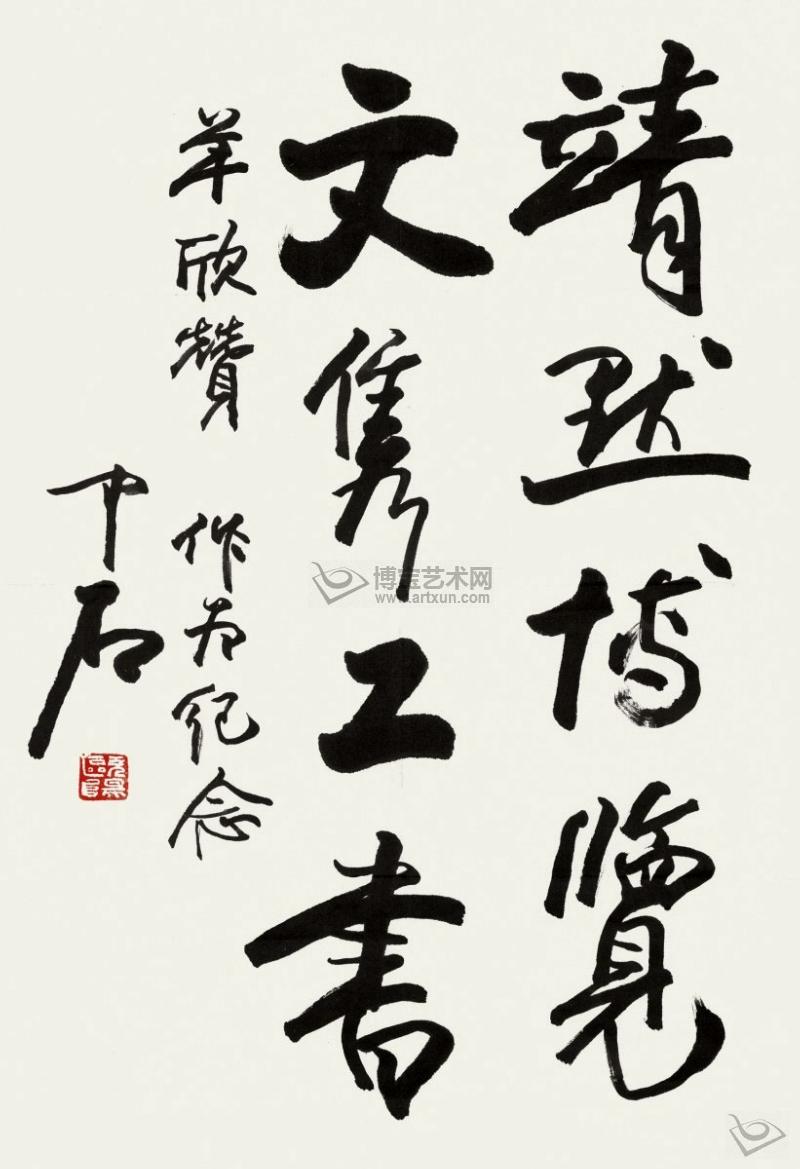 靖默博覽
文雋工書
羊欣贊 作为纪念
中石
博宝艺术网
www.artxun.com